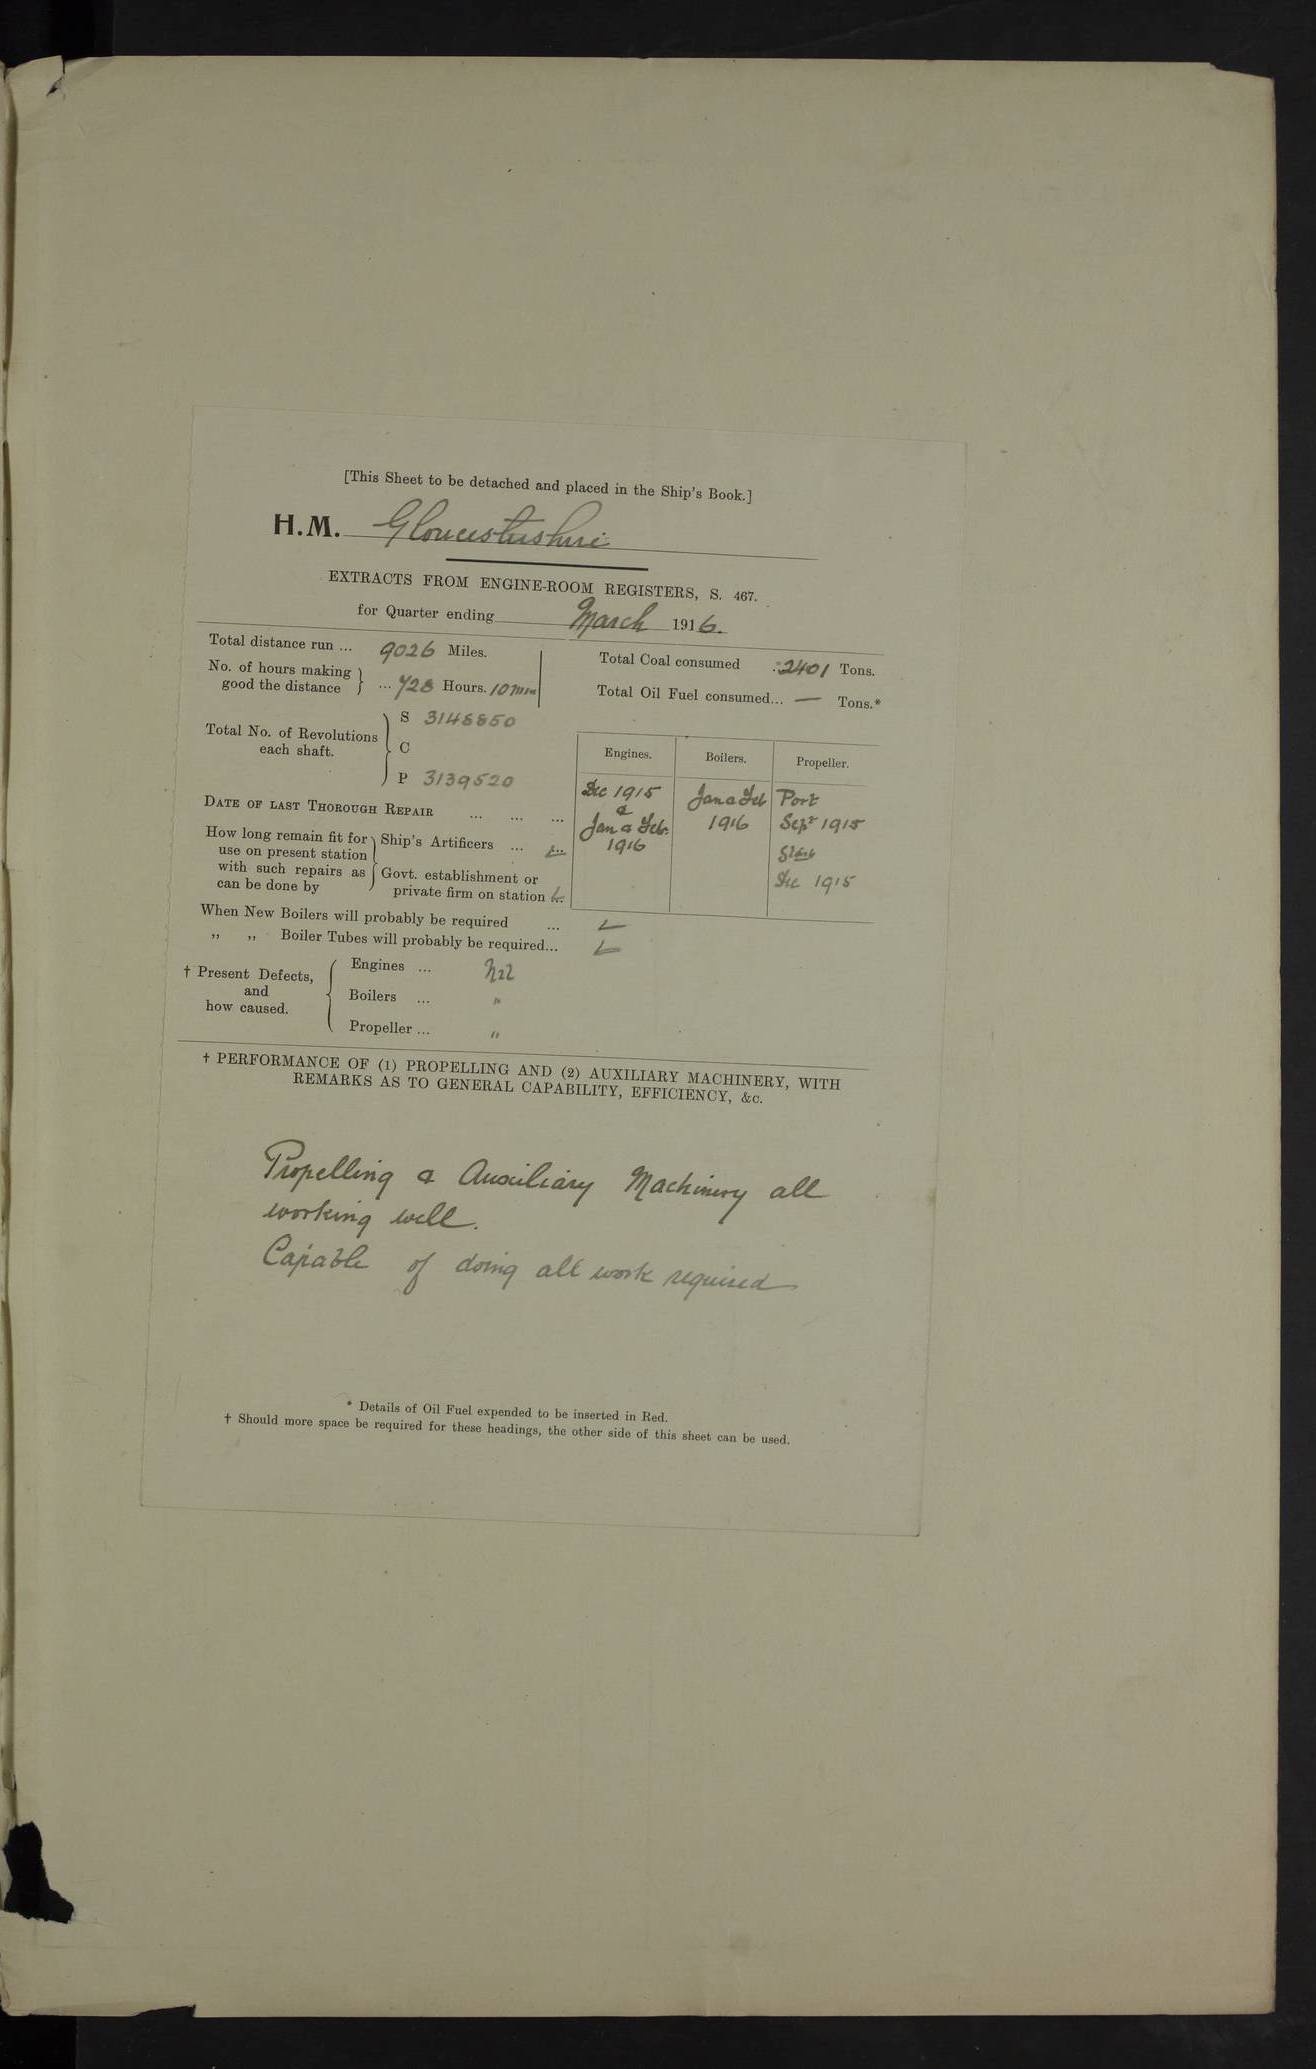 [This Sheet to be detached and placed in the Ship's Book.]
H.M. Gloucestershire
EXTRACTS FROM ENGINE-ROOM REGISTERS, S. 467.
for Quarter ending March 1916.
Total distance run ... 9026 Miles.
No. of hours making good the distance } ... 728 Hours. 10 min
Total Coal consumed 2401 Tons.
Total Oil Fuel consumed... — Tons.*
Total No. of Revolutions each shaft.
S 3148850
C
P 3139520
Engines. Boilers. Propeller.
DATE OF LAST THOROUGH REPAIR ... ... ...
Dec 1915
&
Jan & Feb.
1916
Jan & Feb
1916
Port
Sept 1915
Starb
Dec 1915
How long remain fit for use on present station with such repairs as can be done by
Ship's Artificers ...
Govt. establishment or private firm on station
When New Boilers will probably be required ...
„ „ Boiler Tubes will probably be required...
† Present Defects, and how caused.
Engines ... Nil
Boilers ... "
Propeller ... "
† PERFORMANCE OF (1) PROPELLING AND (2) AUXILIARY MACHINERY, WITH
REMARKS AS TO GENERAL CAPABILITY, EFFICIENCY, &c.
Propelling & Auxiliary Machinery all
working well.
Capable of doing all work required
* Details of Oil Fuel expended to be inserted in Red.
† Should more space be required for these headings, the other side of this sheet can be used.